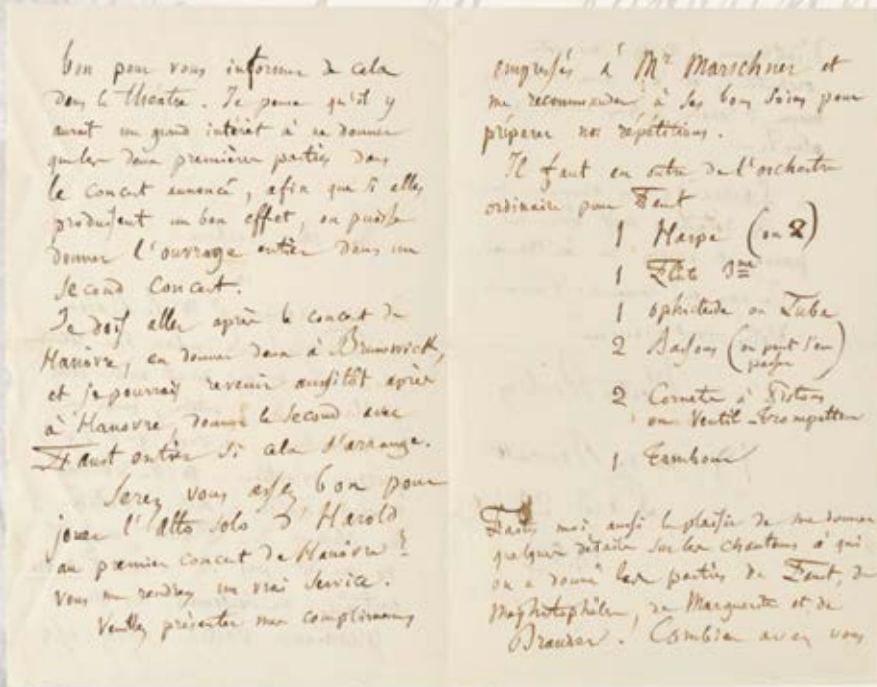 bon pour vous informer de cela
dans le théatre. Je pense qu'il y
aurait un grand intérêt à ne donner
que les deux premières parties dans
le concert annoncé, afin que si elles
produisent un bon effet, on puisse
donner l'ouvrage entier dans un
second Concert.
Je dois aller après le concert de
Hanôvre, en donner deux à Brunswick,
et je pourrais revenir aussitôt après
à Hanovre, donner le second avec
Faust entier si cela s'arrange.
Serez vous assez bon pour
jouer l'alto solo d'Harold
au premier concert de Hanôvre?
vous me rendrez un vrai service.
Veuillez présenter mes complimens
empressés à Mr Marschner et
me recommander à ses bons soins pour
préparer nos répétitions.
Il faut en outre de l'orchestre
ordinaire pour Faust
1 Harpe (ou 2)
1 Flûte 3me
1 ophicleide ou Tuba
2 Bassons (on peut s'en
passer)
2 Cornets à Pistons
ou Ventil-trompetten
1 Tambour
Faites moi aussi le plaisir de me donner
quelques détails sur les chanteurs à qui
on a donné les parties de Faust, de
Mephistophélès, de Marguerite et de
Brander. Combien avez vous